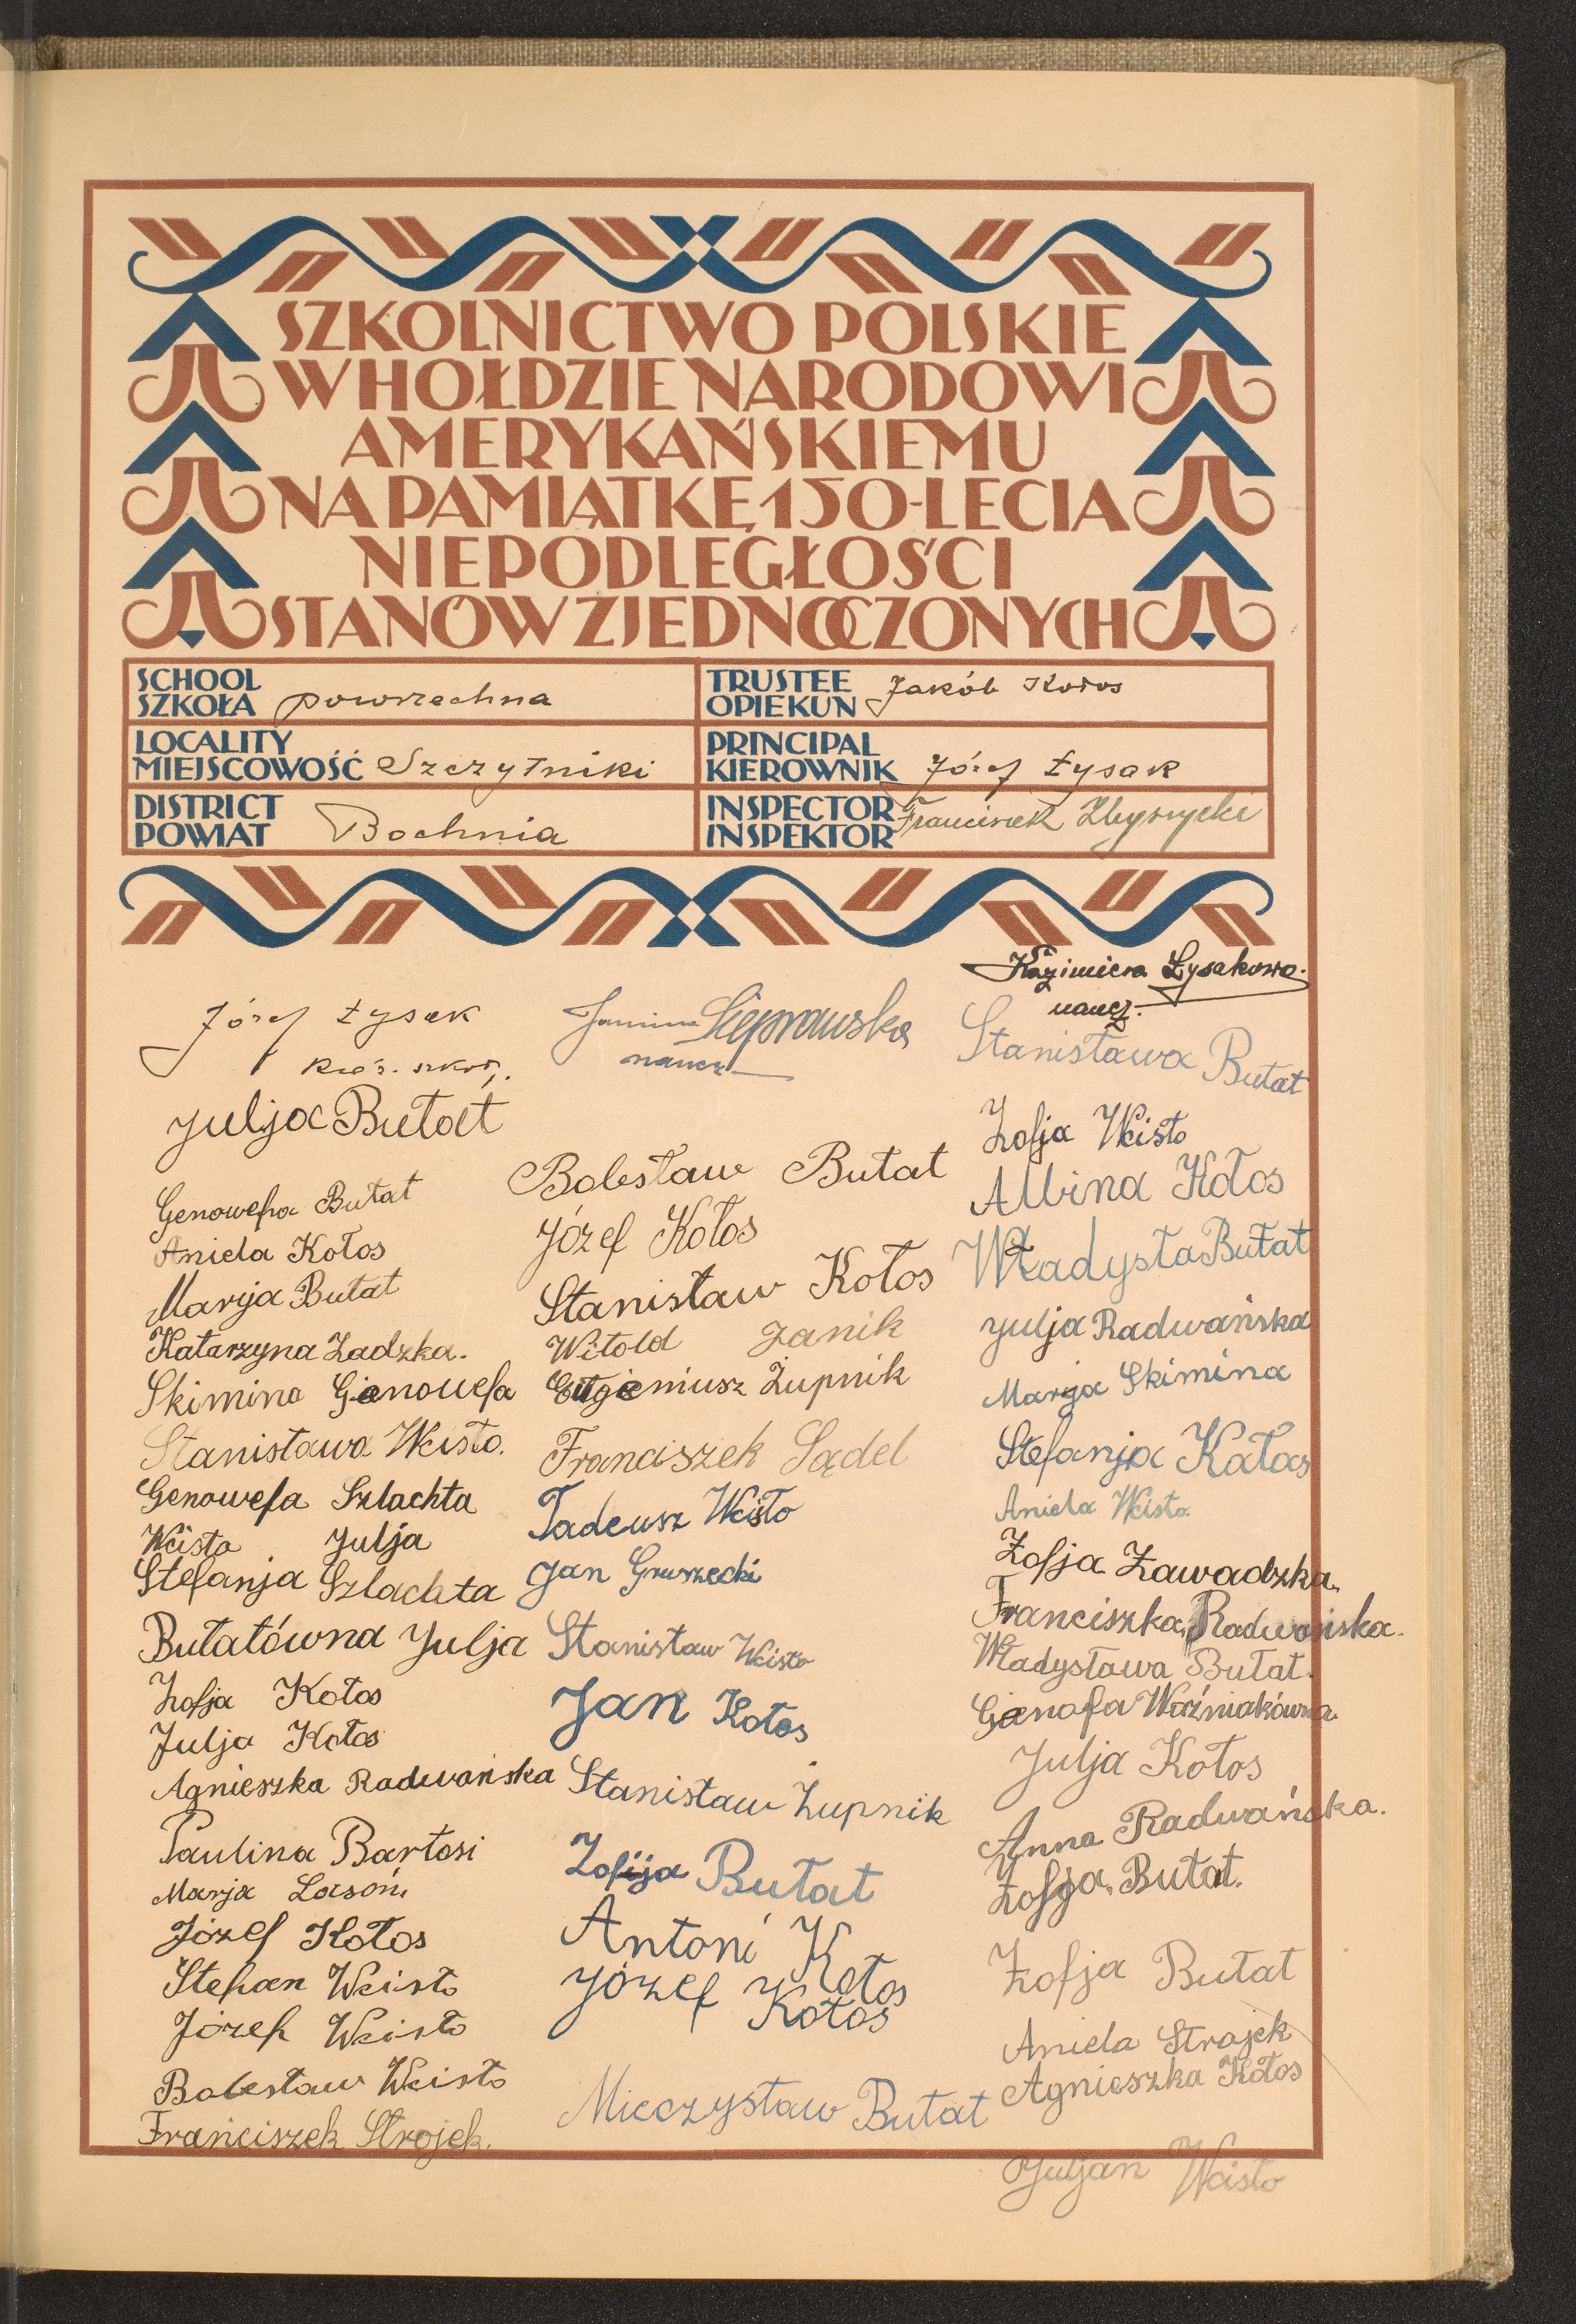 SZKOLNICTWO POLSKIE
W HOŁDZIE NARODOWI
AMERYKAŃSKIEMU
NA PAMIĄTKĘ 150-LECIA
NIEPODLEGŁOŚCI
STANÓW ZJEDNOCZONYCH
SCHOOL
SZKOŁA powszechna
TRUSTEE
OPIEKUN Jakób Kołos
LOCALITY
MIEJSCOWOŚĆ Szczytniki
PRINCIPAL
KIEROWNIK Józef Łysak
DISTRICT
POWIAT Bochnia
INSPECTOR
INSPEKTOR Franciszek
Józef Łysak
Julja Butat
Genowefa Butat
Aniela Kołos
Marija Butat
Katarzyna Zadzka.
Skimina Gienowefa
Stanisława Wcisło.
Genowefa Szlachta
Wcisło Julja
Stefanja Szlachta
Butatówna Julja
Zofja Kołos
Julja Kołos
Agnieszka Radwańska
Paulina Bartosi
Marja Lasoń
Józef Kołos
Stefan Wcisło
Józef Wcisło
Bolesław Wcisło
Franciszek Strojek.
Janina Sieprawska
naucz.
Bolesław Butat
Józef Kołos
Stanisław Kołos
Witold Janik
Eugieniusz Żupnik
Franciszek Sądel
Tadeusz Wcisło
Jan Gruszecki
Stanisław Wcisło
Jan Kołos
Stanisław Żupnik
Zofija Butat
Antoni Kołos
Józef Kołos
Mieczysław Butat
Kazimiera Łysakowa.
naucz.
Stanisława Butat
Zofja Wcisło
Albina Kołos
Władysła Butat
Julja Radwańska
Marja Skimina
Stefanja Kołos
Aniela Wcisło.
Zofja Zawadzka.
Franciszka Radwańska.
Władysława Butat.
Gienofa Woźniakówna.
Julja Kołos
Anna Radwańska.
Zofja Butat.
Zofja Butat
Aniela Strojek
Agnieszka Kołos
Juljan Wcisło